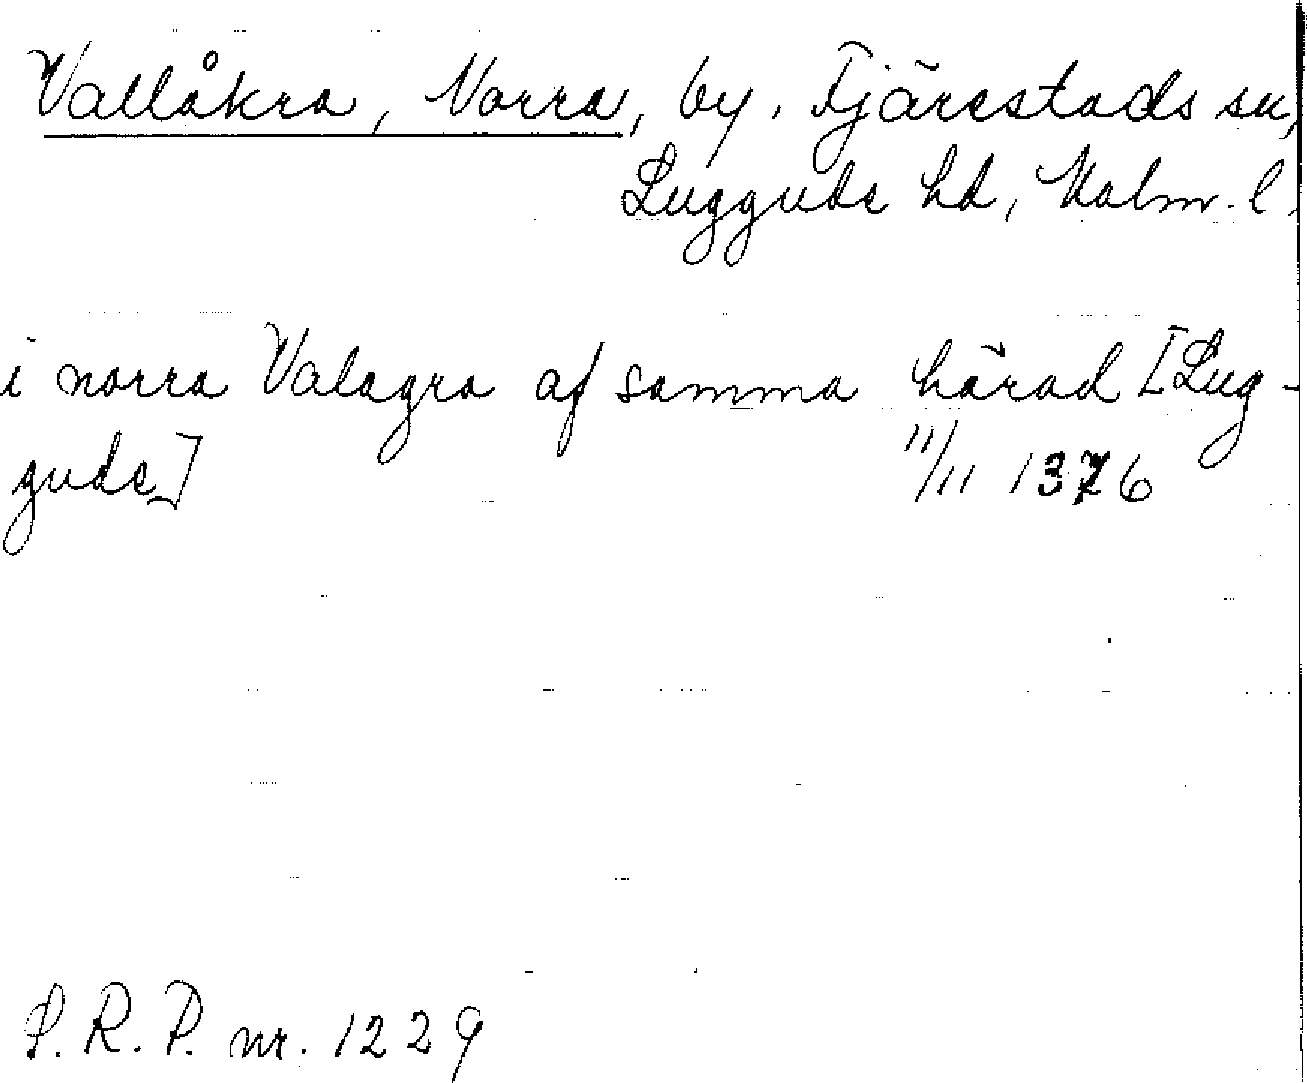 Vallåkra, Norra, by. Fjärestads sn,
Luggude hd, Malm. l.
i norra Valagra af samma härad [Lug-
gude]
11/11 1376
S. R. P. nr. 1229